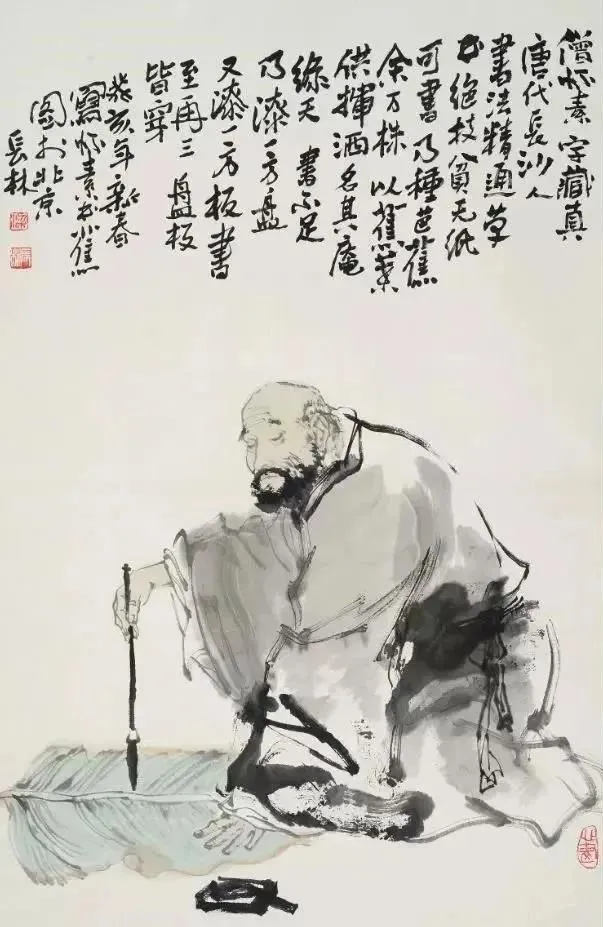 僧怀素 字藏真
唐代长沙人
書法精通草
书绝技贫无纸
可書乃種芭蕉
余万株以蕉葉
供揮洒名其庵
绿天 書不足
乃漆一方盘
又漆一方板書
至再三盘板
皆穿
癸亥年新春
寫怀素书蕉
图于北京
长林